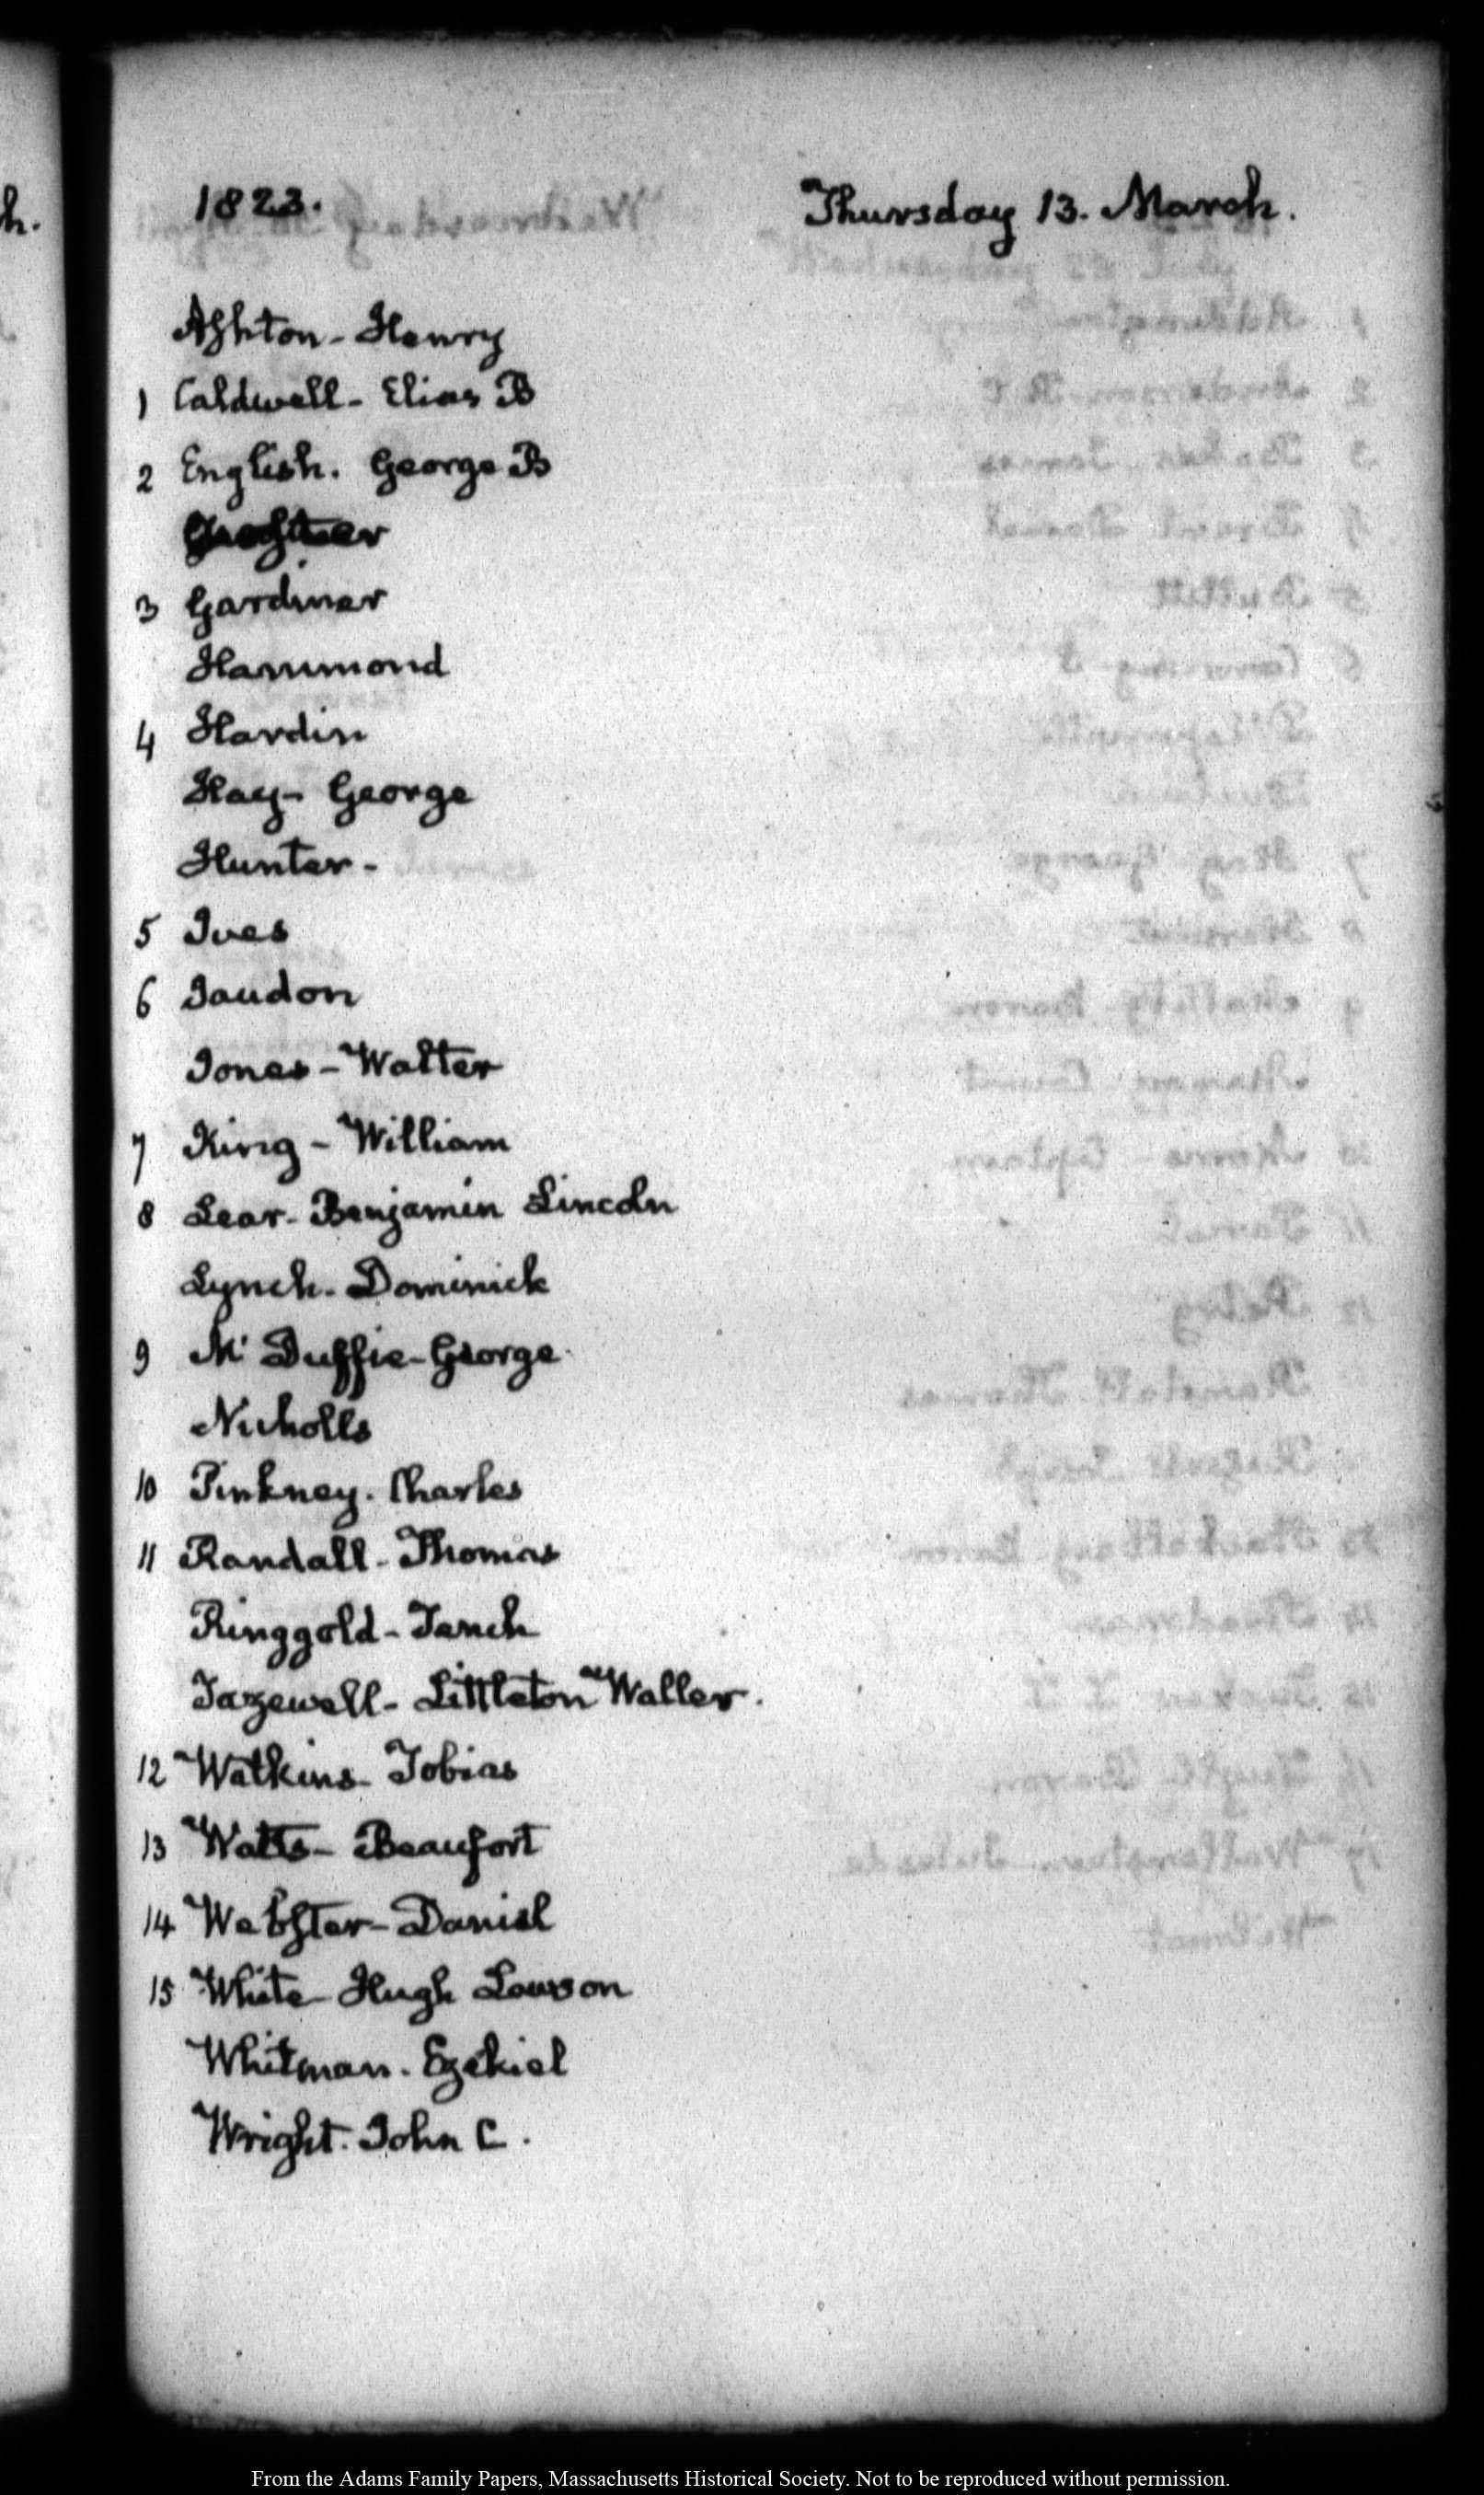 1823. Thursday 13. March.
Ashton - Henry
1 Caldwell - Elias B
2 English. George B
3 Gardiner
Hammond
4 Hardin
Hay - George
Hunter -
5 Ives
6 Jaudon
Jones - Walter
7 King - William
8 Lear - Benjamin Lincoln
Lynch - Dominick
9 Mc Duffie - George
Nicholls
10 Pinkney. Charles
11 Randall - Thomas
Ringgold - Tench
Tazewell - Littleton Waller.
12 Watkins - Tobias
13 Watts - Beaufort
14 Webster - Daniel
15 White - Hugh Lawson
Whitman. Ezekiel
Wright. John C.
From the Adams Family Papers, Massachusetts Historical Society. Not to be reproduced without permission.